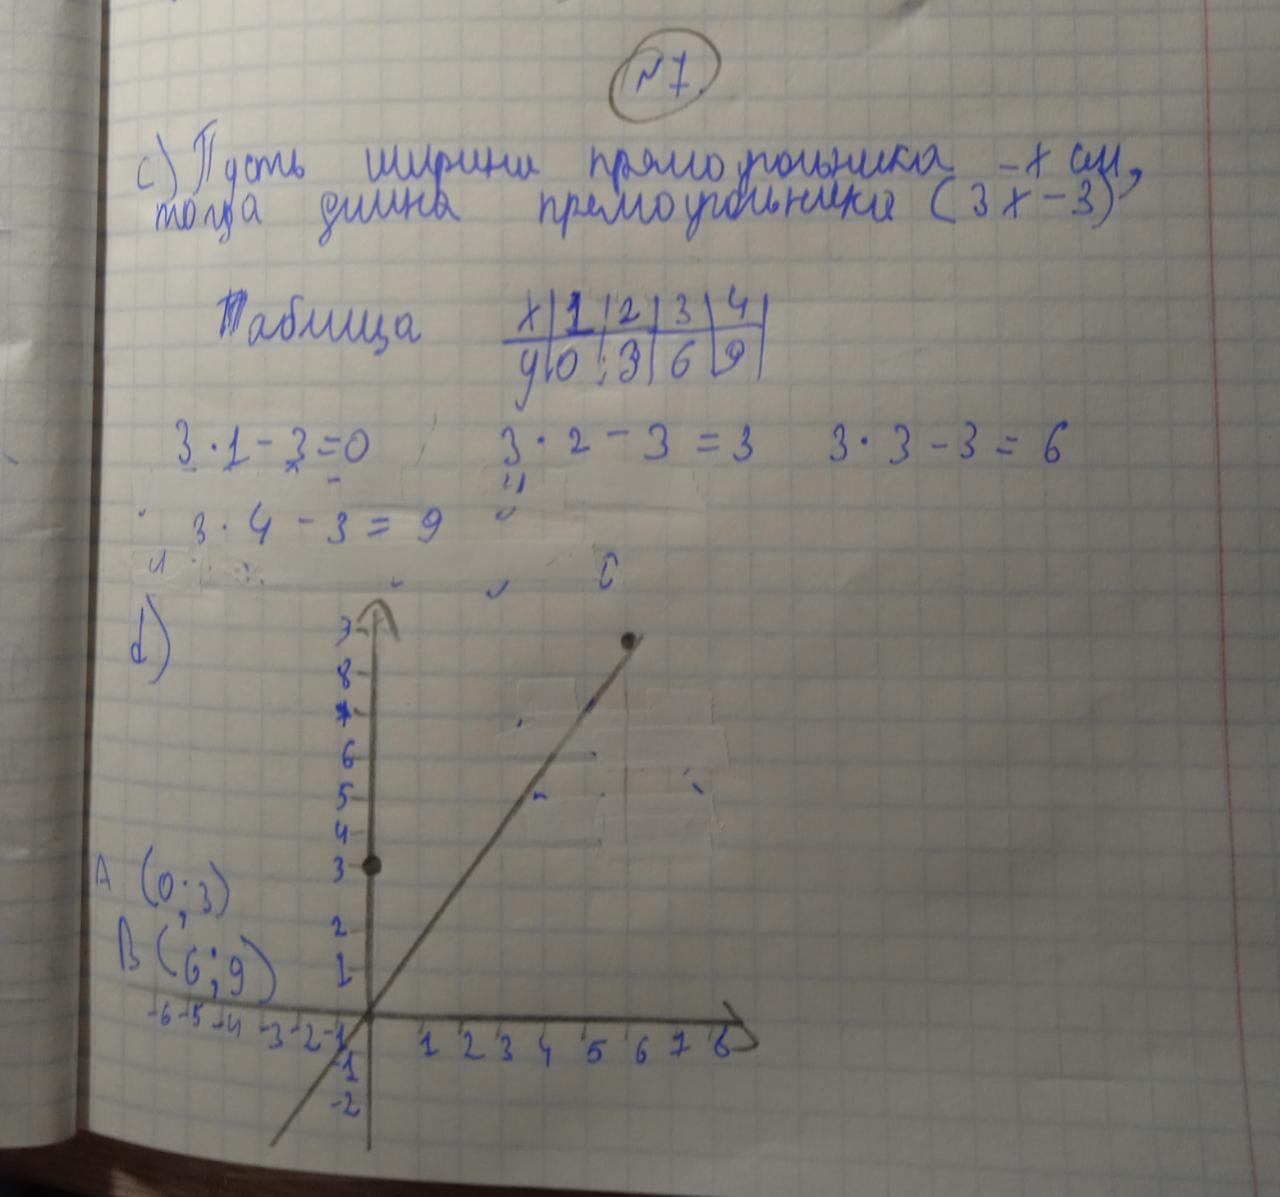 №7.
c) Пусть ширина прямоугольника – x см,
тогда длина прямоугольника (3x – 3),
Таблица
x | 1 | 2 | 3 | 4
y | 0 | 3 | 6 | 9
3 · 1 – 3 = 0 3 · 2 – 3 = 3 3 · 3 – 3 = 6
3 · 4 – 3 = 9
d)
9
8
7
6
5
4
3
A (0; 3)
2
B (6; 9)
1
-6 -5 -4 -3 -2 -1 1 2 3 4 5 6 7 8
-1
-2